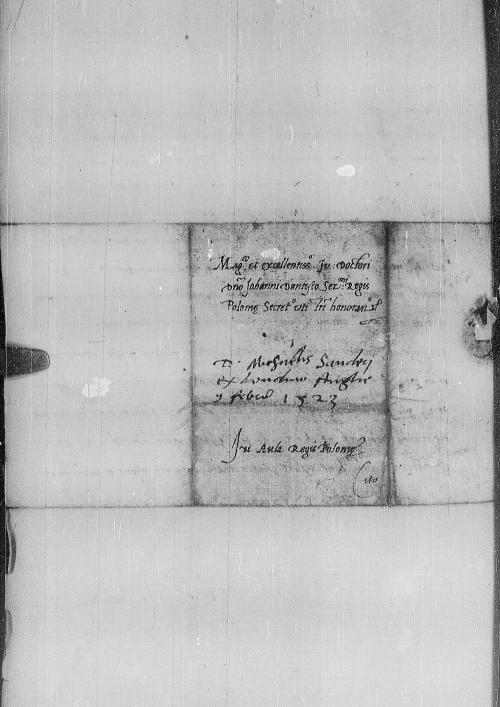 Mag.co et excellentiss.o Ju. Doctori
D.no Johanni Dantisco Ser.mi Regis
Polonię Secret.o uti fr̃i honoran.o
D. Michaelis Sandrj
ex Londino Anglie
9 Febru 1523
In Aula Regis Polonię
Cito